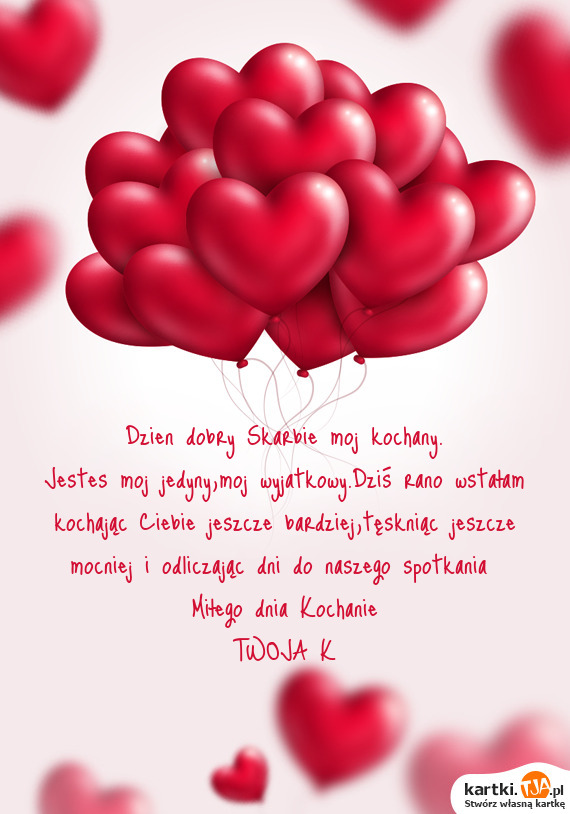 Dzien dobry Skarbie moj kochany.
Jestes moj jedyny,moj wyjatkowy.Dziś rano wstałam
kochając Ciebie jeszcze bardziej,tęskniąc jeszcze
mocniej i odliczając dni do naszego spotkania
Miłego dnia Kochanie
TWOJA K
kartki.TJA.pl
Stwórz własną kartkę